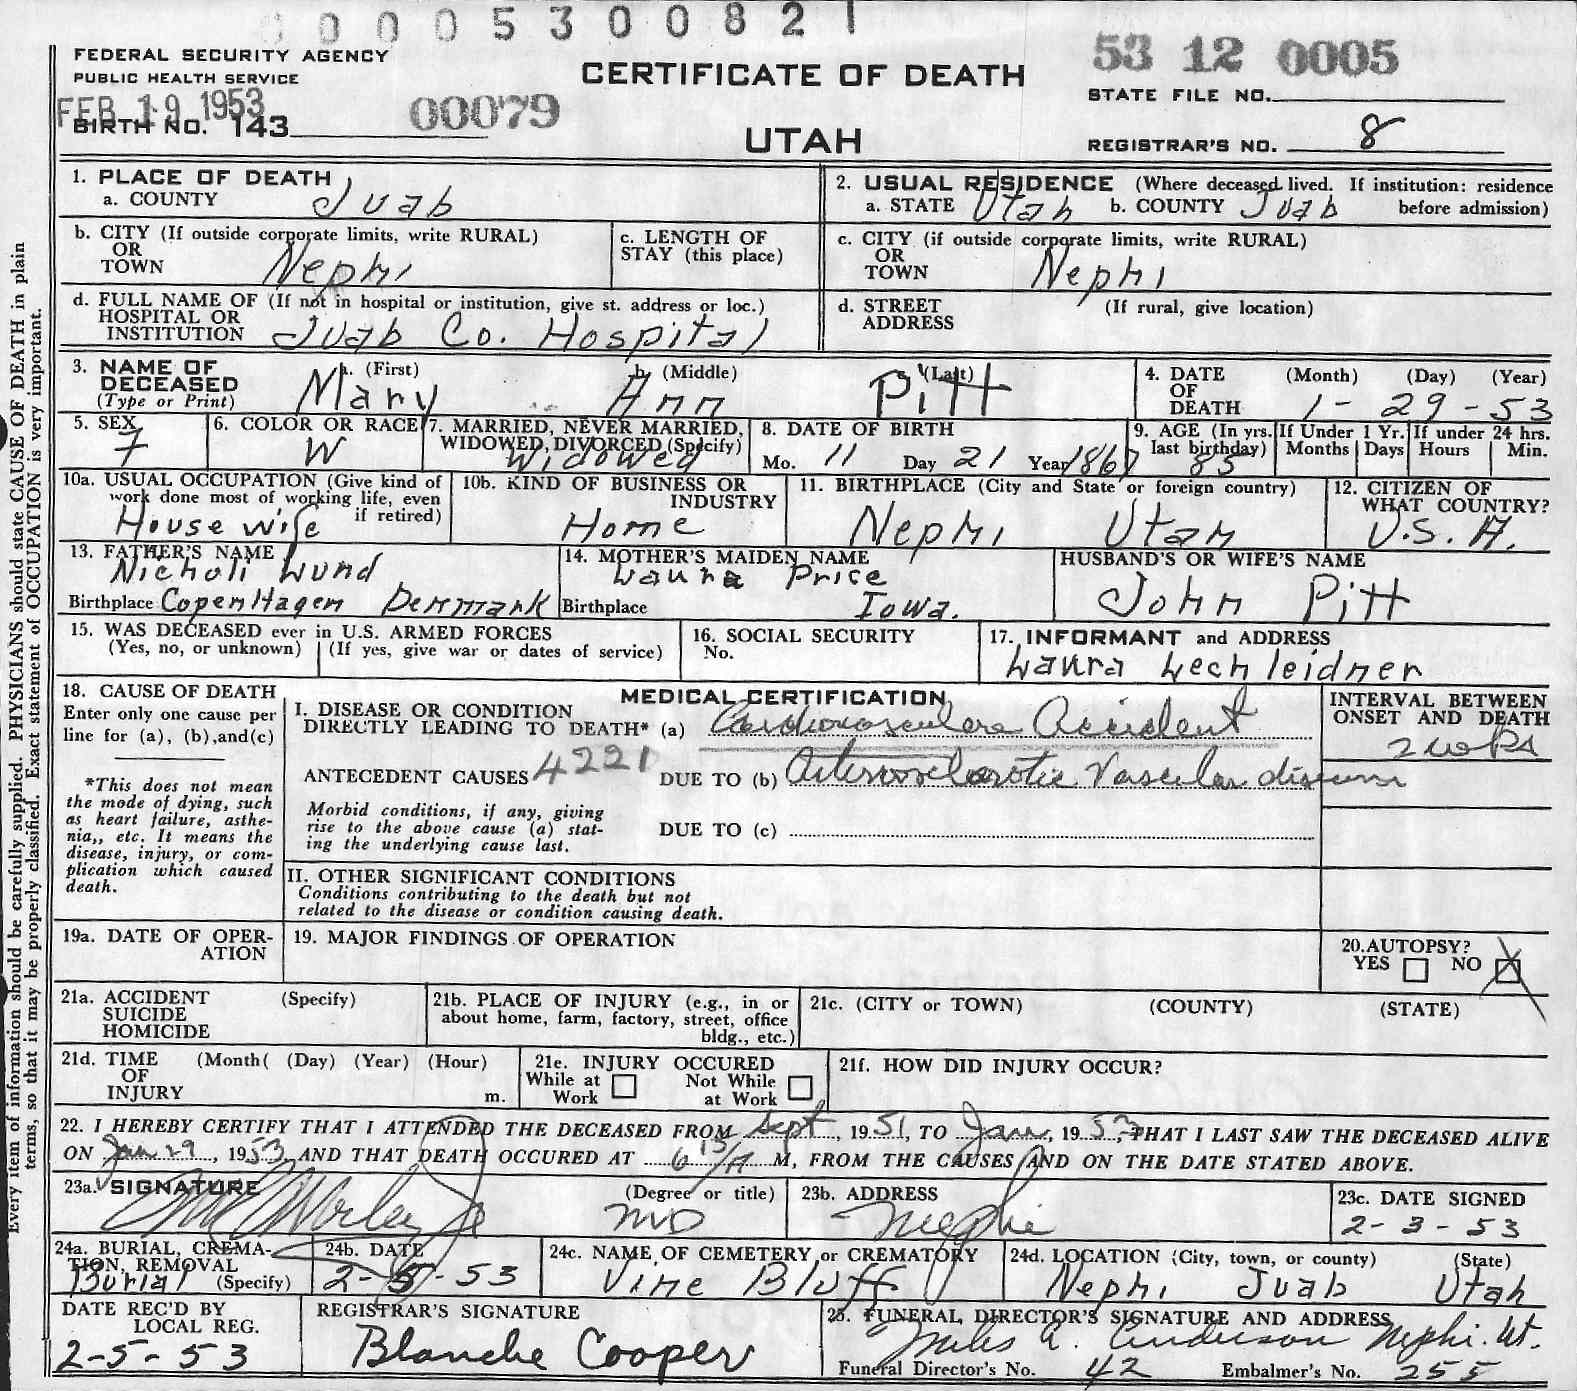 0000530082 1
FEDERAL SECURITY AGENCY
PUBLIC HEALTH SERVICE
CERTIFICATE OF DEATH
53 12 0005
STATE FILE NO.
FEB 19 1953
BIRTH NO. 143
00079
UTAH
REGISTRAR'S NO. 8
1. PLACE OF DEATH
a. COUNTY Juab
2. USUAL RESIDENCE (Where deceased lived. If institution: residence before admission)
a. STATE Utah b. COUNTY Juab
b. CITY (If outside corporate limits, write RURAL)
OR
TOWN Nephi
c. LENGTH OF
STAY (this place)
c. CITY (if outside corporate limits, write RURAL)
OR
TOWN Nephi
d. FULL NAME OF (If not in hospital or institution, give st. address or loc.)
HOSPITAL OR
INSTITUTION Juab Co. Hospital
d. STREET
ADDRESS
(If rural, give location)
3. NAME OF
DECEASED
(Type or Print)
a. (First) Mary
b. (Middle) Ann
c. (Last) Pitt
4. DATE
OF
DEATH
(Month) (Day) (Year)
1 - 29 - 53
5. SEX
F
6. COLOR OR RACE
W
7. MARRIED, NEVER MARRIED,
WIDOWED, DIVORCED (Specify)
Widowed
8. DATE OF BIRTH
Mo. 11 Day 21 Year 1867
9. AGE (In yrs.
last birthday)
85
If Under 1 Yr.
Months Days
If under 24 hrs.
Hours Min.
10a. USUAL OCCUPATION (Give kind of
work done most of working life, even
if retired)
House wife
10b. KIND OF BUSINESS OR
INDUSTRY
Home
11. BIRTHPLACE (City and State or foreign country)
Nephi Utah
12. CITIZEN OF
WHAT COUNTRY?
U.S.A.
13. FATHER'S NAME
Nicholi Lund
Birthplace CopenHagen Denmark
14. MOTHER'S MAIDEN NAME
Laura Price
Birthplace Iowa.
HUSBAND'S OR WIFE'S NAME
John Pitt
15. WAS DECEASED ever in U.S. ARMED FORCES
(Yes, no, or unknown) (If yes, give war or dates of service)
16. SOCIAL SECURITY
No.
17. INFORMANT and ADDRESS
Laura Lechleidner
18. CAUSE OF DEATH
Enter only one cause per
line for (a), (b),and(c)
*This does not mean
the mode of dying, such
as heart failure, asthe-
nia,, etc. It means the
disease, injury, or com-
plication which caused
death.
MEDICAL CERTIFICATION
I. DISEASE OR CONDITION
DIRECTLY LEADING TO DEATH* (a) Cardiovasculare Accident
ANTECEDENT CAUSES 4221
DUE TO (b) Arteriosclerotic Vascular disease
Morbid conditions, if any, giving
rise to the above cause (a) stat-
ing the underlying cause last.
DUE TO (c)
INTERVAL BETWEEN
ONSET AND DEATH
2 wks
II. OTHER SIGNIFICANT CONDITIONS
Conditions contributing to the death but not
related to the disease or condition causing death.
19a. DATE OF OPER-
ATION
19. MAJOR FINDINGS OF OPERATION
20.AUTOPSY?
YES NO X
21a. ACCIDENT (Specify)
SUICIDE
HOMICIDE
21b. PLACE OF INJURY (e.g., in or
about home, farm, factory, street, office
bldg., etc.)
21c. (CITY or TOWN) (COUNTY) (STATE)
21d. TIME (Month( (Day) (Year) (Hour)
OF
INJURY m.
21e. INJURY OCCURED
While at
Work
Not While
at Work
21f. HOW DID INJURY OCCUR?
22. I HEREBY CERTIFY THAT I ATTENDED THE DECEASED FROM Sept, 1951, TO Jan, 1953, THAT I LAST SAW THE DECEASED ALIVE
ON Jan 29, 1953, AND THAT DEATH OCCURED AT 6 15/A M, FROM THE CAUSES AND ON THE DATE STATED ABOVE.
23a. SIGNATURE
(Degree or title)
MD
23b. ADDRESS
Nephi
23c. DATE SIGNED
2 - 3 - 53
24a. BURIAL, CREMA-
TION, REMOVAL
Burial (Specify)
24b. DATE
2-5-53
24c. NAME OF CEMETERY or CREMATORY
Vine Bluff
24d. LOCATION (City, town, or county) (State)
Nephi Juab Utah
DATE REC'D BY
LOCAL REG.
2-5-53
REGISTRAR'S SIGNATURE
Blanche Cooper
25. FUNERAL DIRECTOR'S SIGNATURE AND ADDRESS
Miles A. Anderson Nephi. Ut.
Funeral Director's No. 42 Embalmer's No. 255
Every item of information should be carefully supplied. PHYSICIANS should state CAUSE OF DEATH in plain
terms, so that it may be properly classified. Exact statement of OCCUPATION is very important.